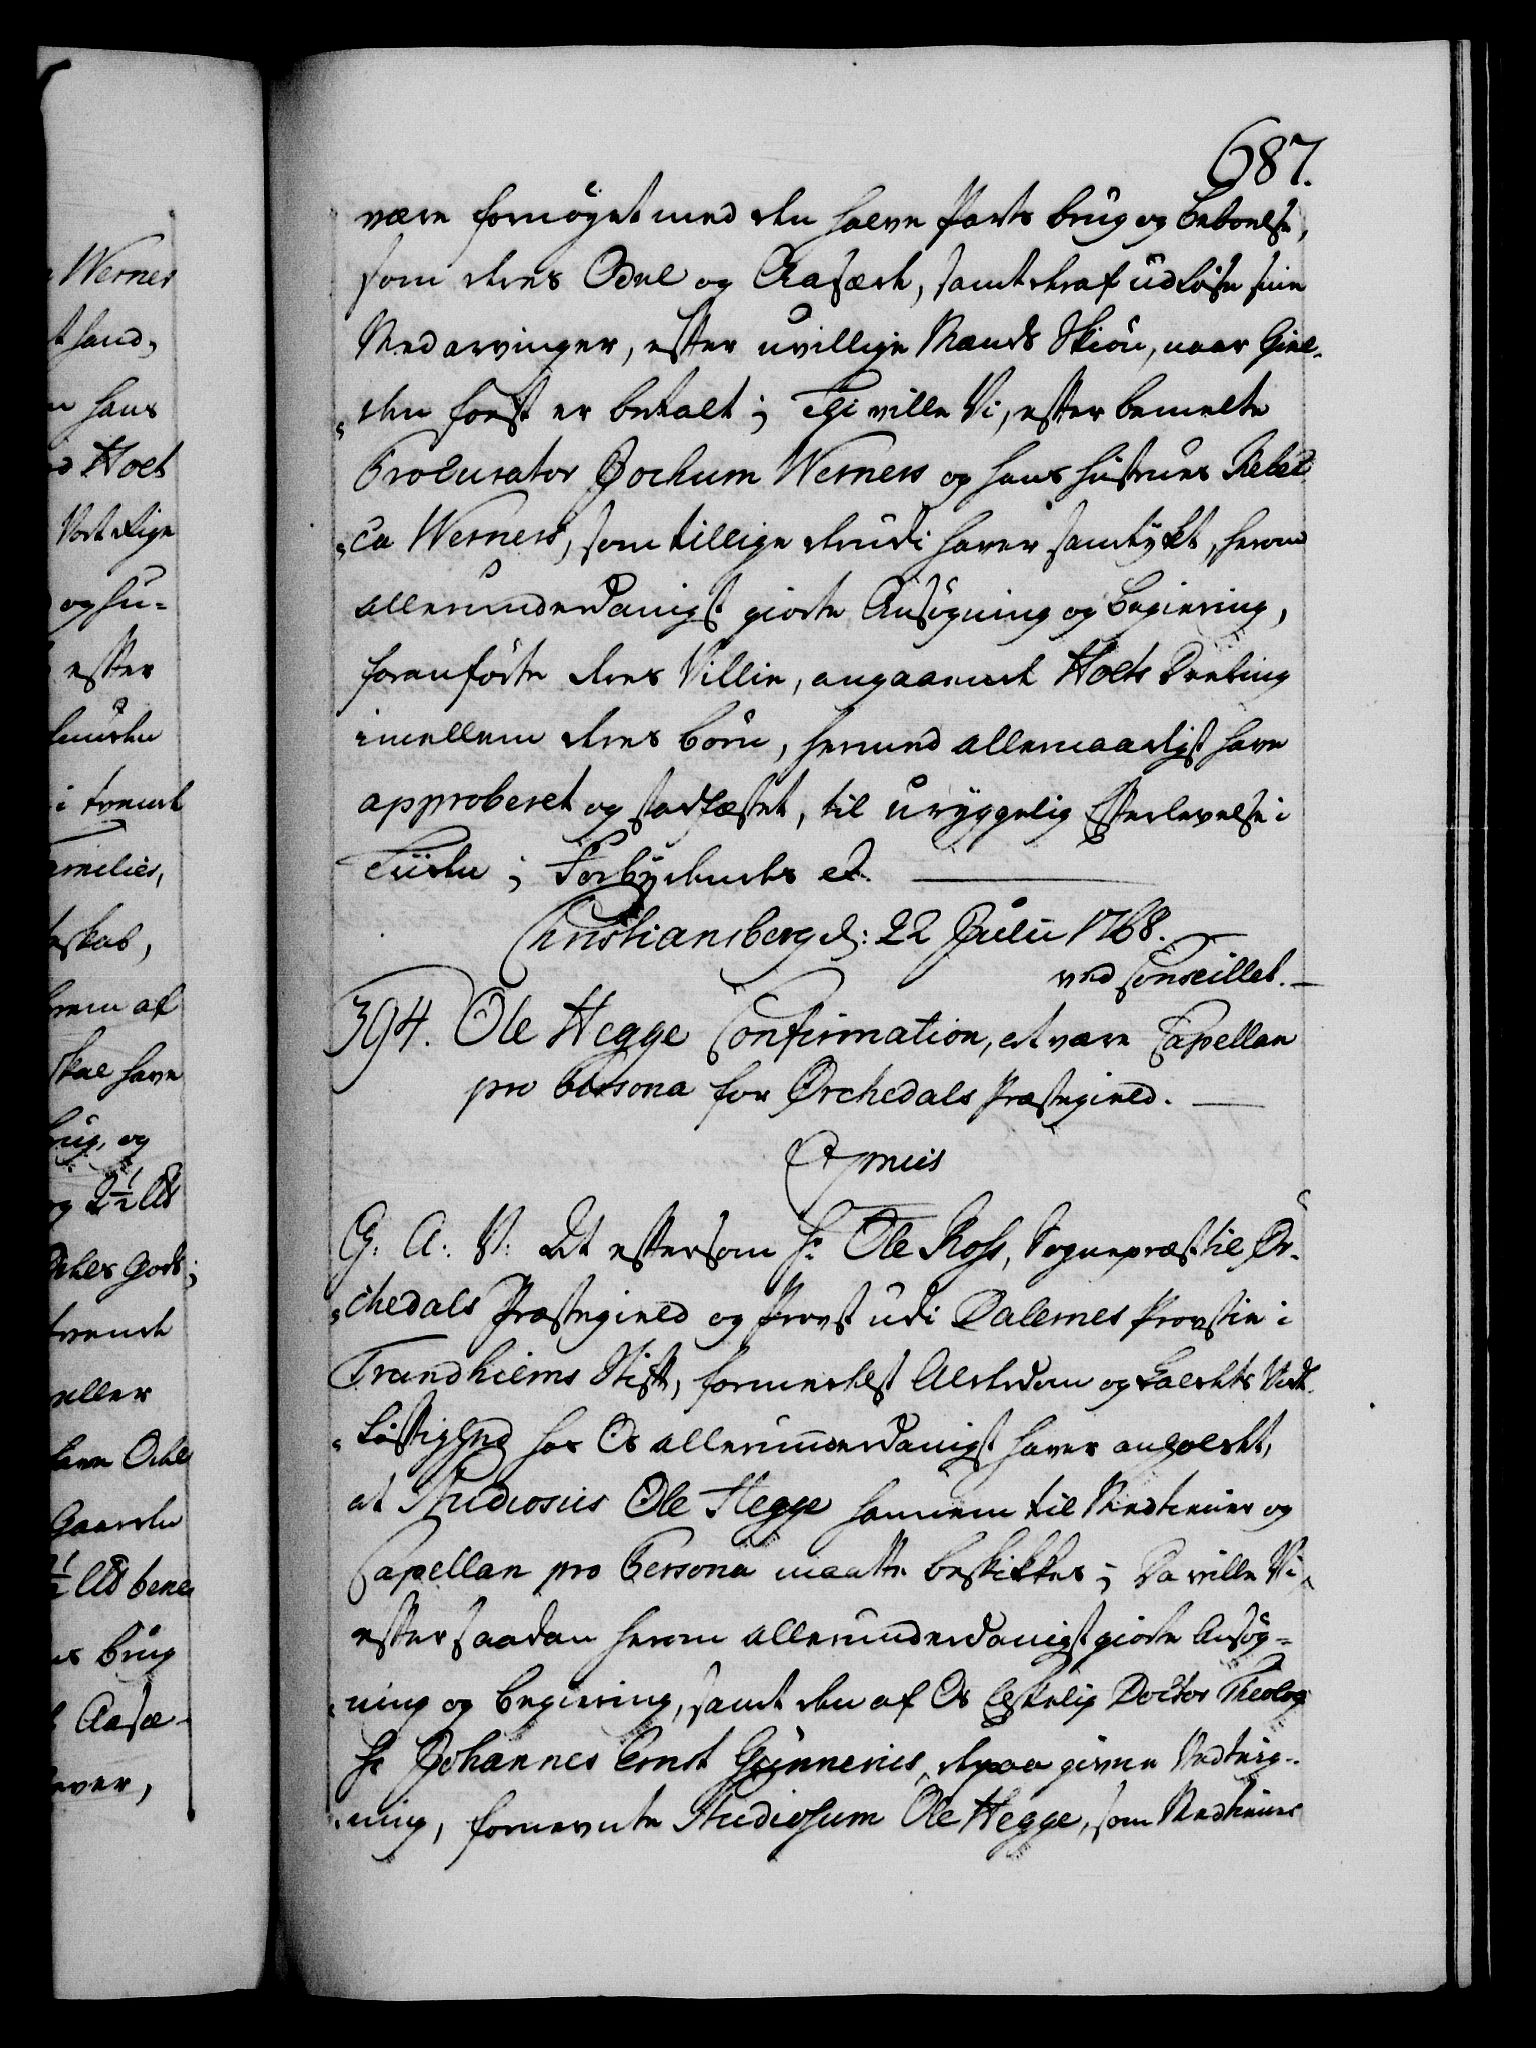 687.
være fornøyet med den halve Parts brug og Beboelse,
som deres Odel og Aasæde, samt deraf udløse sine
Medarvinger, efter uvillige Mænds Skiøn, naar Giel-
den først er betalt; Thi ville Vi, efter bemelte
Procurator Jochum Werners og hans Hustrues Rebec-
ca Werners, som tillige derudi haver samtykt, herom
allerunderdanigst giorte Ansøgning og Begiering,
foranførte deres Villie, angaaende Holts Deeling
imellem deres børn, hermed allernaadigst have
approberet og stadfæstet, til uryggelig Efterlevelse i
Tiiden; Forbydendes etc.
Christiansberg d: 22 Julii 1768.
ved Conseillet.
394. Ole Hegge Confirmation, at være Capellan
pro Persona for Orchedals Præstegield.
Gratis
G: A: V: At eftersom Hr Ole Ross, Sognepræst til Or-
chedals Præstegield og Provst udi Dalernes Provstie i
Trundhiems Stift, formedelst Alderdom og
hos Os allerunderdanigst haver anholdt,
at Studiosus Ole Hegge hannem til Medtiener og
Capellan pro Persona maatte beskikkes; Da ville Vi
efter saadan herom allerunderdanigst giorte Ansøg-
ning og begiering, samt den af Os Elskelig Doctor Theolog:
Hr Johannes Ernst Gunnerus, derpaa givne Erklæ-
ring, fornevnte Studiosum Ole Hegge, som Medtiener
Werner
t hand,
n hans
d Holt
og hu-
efter
i trende
amilies,
skab,
rem af
skal have
brug, og
og 2½
Gods;
trende
eller
Gaarden
½
bene
s brug
Aasæ-
ever,